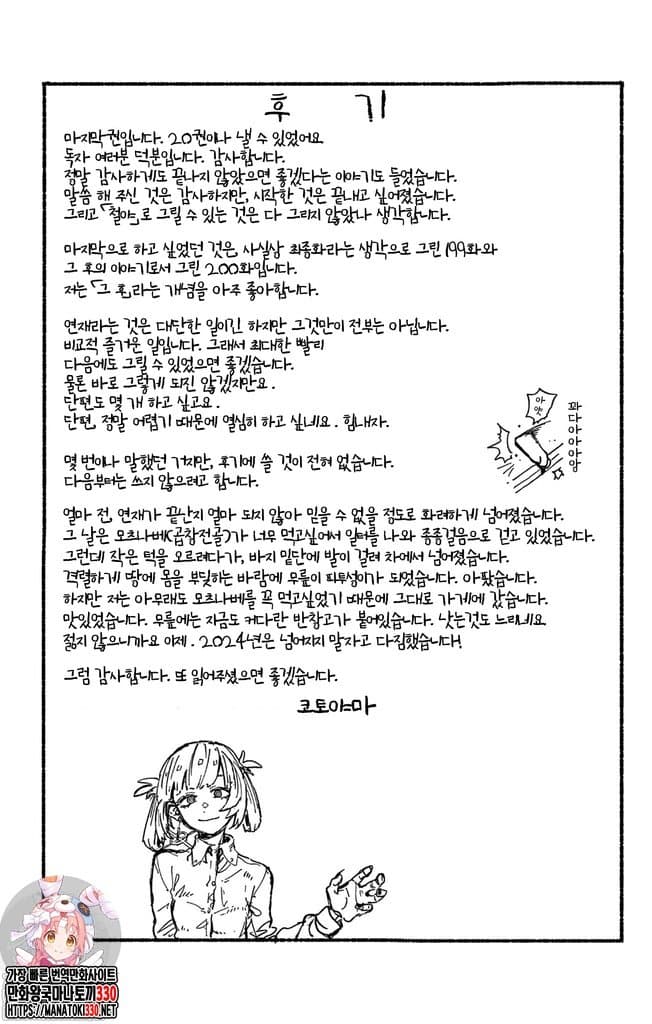 후 기
마지막권입니다. 20권이나 낼 수 있었어요
독자 여러분 덕분입니다. 감사합니다.
정말 감사하게도 끝나지 않았으면 좋겠다는 이야기도 들었습니다.
말씀 해 주신 것은 감사하지만, 시작한 것은 끝내고 싶어졌습니다.
그리고 「철야」로 그릴 수 있는 것은 다 그리지 않았나 생각합니다.
마지막으로 하고 싶었던 것은, 사실상 최종화라는 생각으로 그린 199화와
그 후의 이야기로서 그린 200화입니다.
저는 「그 후」라는 개념을 아주 좋아합니다.
연재라는 것은 대단한 일이긴 하지만 그것만이 전부는 아닙니다.
비교적 즐거운 일입니다. 그래서 최대한 빨리
다음에도 그릴 수 있었으면 좋겠습니다.
물론 바로 그렇게 되진 않겠지만요.
단편도 몇 개 하고 싶고요.
단편, 정말 어렵기 때문에 열심히 하고 싶네요. 힘내자.
아얏
꽈다아아아앙
몇 번이나 말했던 거지만, 후기에 쓸 것이 전혀 없습니다.
다음부터는 쓰지 않으려고 합니다.
얼마 전, 연재가 끝난지 얼마 되지 않아 믿을 수 없을 정도로 화려하게 넘어졌습니다.
그 날은 모츠나베(곱창전골)가 너무 먹고싶어서 일터를 나와 종종걸음으로 걷고 있었습니다.
그런데 작은 턱을 오르려다가, 바지 밑단에 발이 걸려 차에서 넘어졌습니다.
격렬하게 땅에 몸을 부딪히는 바람에 무릎이 피투성이가 되었습니다. 아팠습니다.
하지만 저는 아무래도 모츠나베를 꼭 먹고싶었기 때문에 그대로 가게에 갔습니다.
맛있었습니다. 무릎에는 지금도 커다란 반창고가 붙어있습니다. 낫는것도 느리네요
젊지 않으니까요 이제. 2024년은 넘어지지 말자고 다짐했습니다!
그럼 감사합니다. 또 읽어주셨으면 좋겠습니다.
코토야마
가장 빠른 번역만화사이트
만화왕국마나토끼330
HTTPS://MANATOKI330.NET